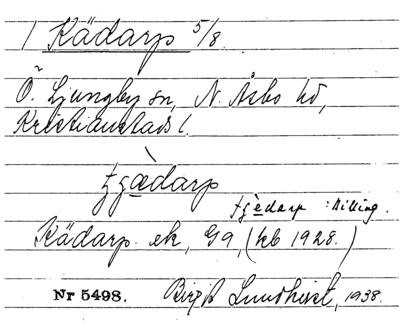 1 Kädarp 5/8.
Ö. Ljungby sn, N. Åsbo hd,
Kristianstads l.
darp
: Billing.
Kädarp. ek, G9, (kb 1928.)
Nr 5498. Birgit Lundkvist, 1938.